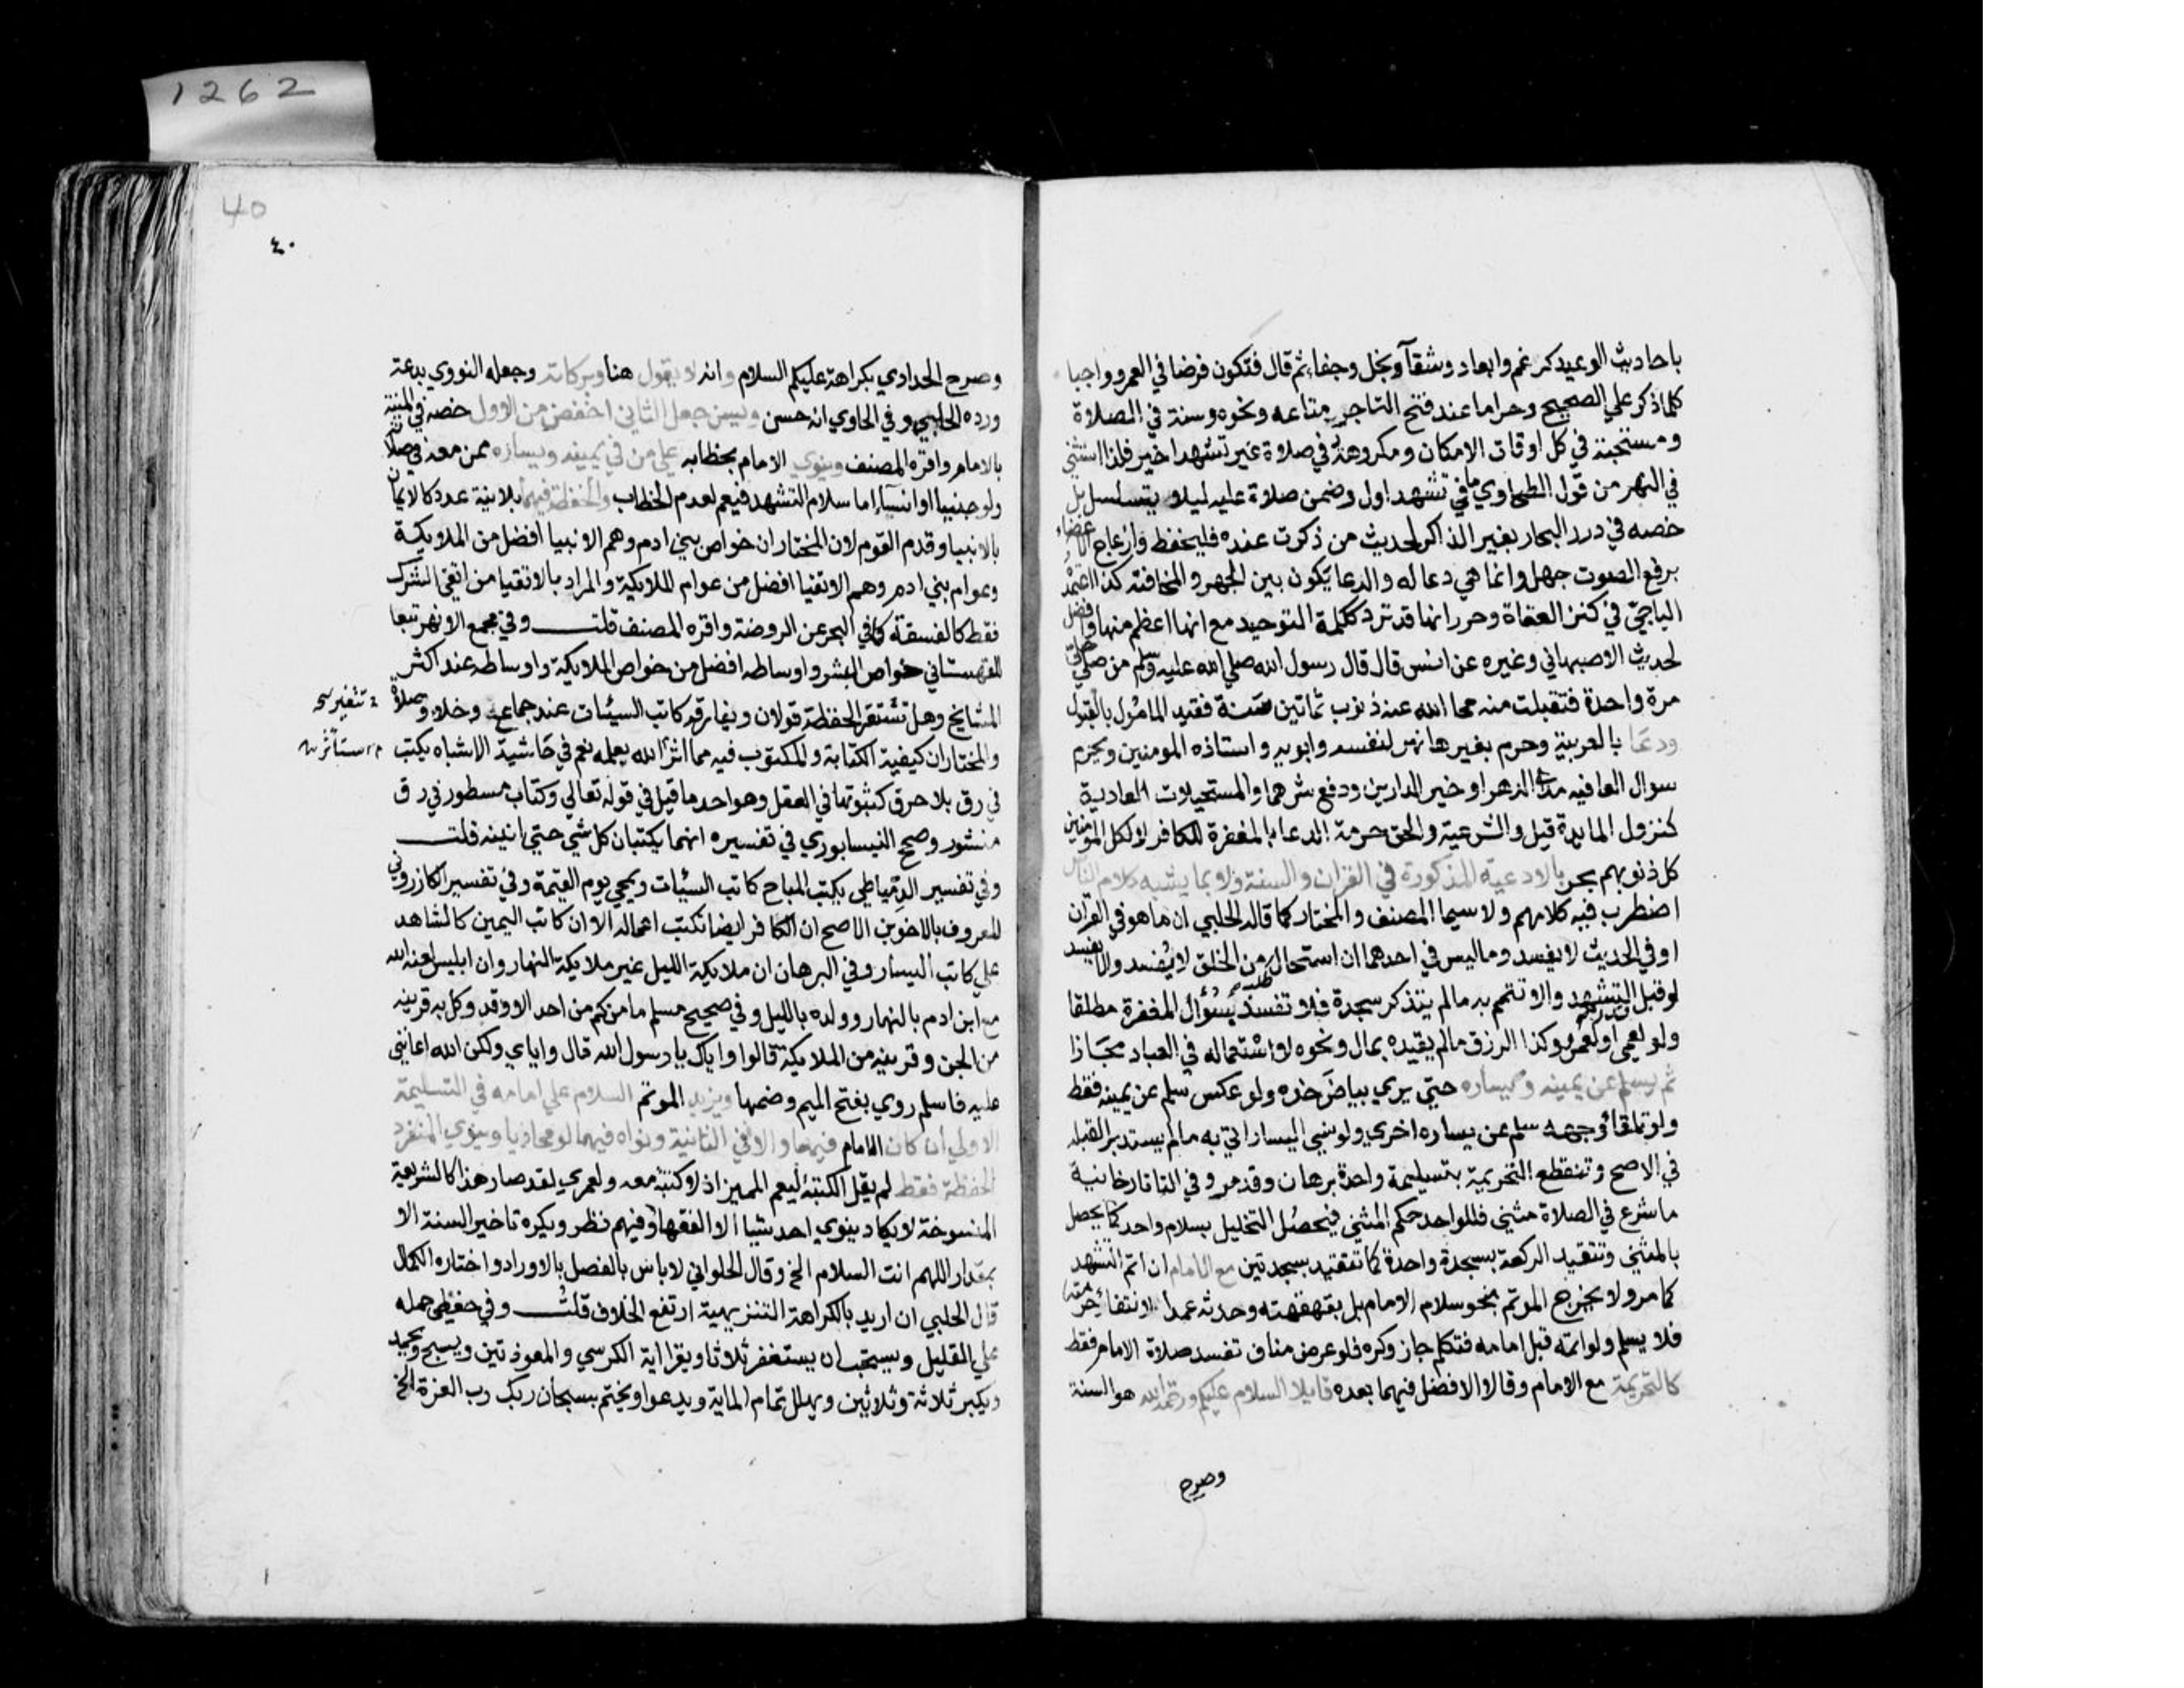 باحاديث الوعيد كرغم وابعاد وشقآ وبخل وجفاء ثم قال فتكون فرضا في العمر وواجبا
كلما ذكر علي الصحيح وحراما عند فتح التاجر متاعه ونحوه وسنة في الصلاة
ومستحبة في كل اوقات الامكان ومكروهة في صلاة غير تشهد اخير فلذا استثني
في النهر من قول الطحاوي ما في تشهد اول وضمن صلاة عليه ليلا يتسلسل بل
خصه في درر البحار بغير الذاكر لحديث من ذكرت عنده فليحفظ وازعاج الاعضاء
برفع الصوت جهل وانما هي دعا له والدعا يكون بين الجهر والمخافتة كذا اعتمد
الباجي في كنز العفاة وحرر انها قد ترد ككلمة التوحيد مع انها اعظم منها وافضل
لحديث الاصبهاني وغيره عن انس قال قال رسول الله صلي الله عليه وسلم من صلي علي
مرة واحدة فتقبلت منه محا الله عنه ذنوب ثمانين سنة فقيد المامول بالقبول
ودعا بالعربية وحرم بغيرها نهر لنفسه وابويه واستاذه المومنين ويحرم
سوال العافيه مدى الدهر او خير الدارين ودفع شرهما والمستحيلات العادية
كنزول المايدة قيل والشرعية والحق حرمة الدعا بالمغفرة للكافر لا لكل المومنين
كل ذنوبهم بحر بالادعية المذكورة في القران والسنة ولا بما يشبه كلام الناس
اضطرب فيه كلامهم ولا سيما المصنف والمختار كما قاله الحلبي ان ما هو في القران
او في الحديث لا يفسد وما ليس في احدهما ان استحال طلبه من الخلق لا يفسد والا يفسد
لو قبل قدر التشهد والا تتم به ما لم يتذكر سجدة فلا تفسد بسؤال المغفرة مطلقا
ولو لعمي او لعمرو وكذا الرزق ما لم يقيده بمال ونحوه لاستعماله في العباد مجازا
ثم يسلم عن يمينه ويساره حتي يري بياض خده ولو عكس سلم عن يمينه فقط
ولو تلقا وجهه سلم عن يساره اخري ولو نسي اليسار اتي به ما لم يستدبر القبله
في الاصح وتنقطع التحريمة بتسليمة واحدة برهان وقد مر وفي التاتارخانية
ما شرع في الصلاة مثني فللواحد حكم المثني فيحصل التحليل بسلام واحد كما يحصل
بالمثني وتتقيد الركعة بسجدة واحدة كما تتقيد بسجدتين مع الامام ان اتم التشهد
كما مر ولا يخرج الموتم بنحو سلام الامام بل بقهقهته وحدثه عمدا لانتفاء حرمتها
فلا يسلم ولو اتمه قبل امامه فتكلم جاز وكره فلو عرض مناف تفسد صلاة الامام فقط
كالتحريمة مع الامام وقالا الافضل فيهما بعده قايلا السلام عليكم ورحمة الله هو السنة
وصرح
1262
40
٤٠
وصرح الحدادي بكراهة عليكم السلام وانه لا يقول هنا وبركاته وجعله النووي بدعة
ورده الحلبي وفي الحاوي انه حسن ويسن جعل الثاني اخفض من الاول خصه في المنية
بالامام واقره المصنف وينوي الامام بخطابه علي من في يمينه ويساره ممن معه في صلاته
ولو جنيا او انسيا اما سلام التشهد فيعم لعدم الخطاب والحفظة فيهما بلا نية عدد كالايمان
بالانبيا وقدم القوم لان المختار ان خواص بني ادم وهم الانبيا افضل من الملايكة
وعوام بني ادم وهم الاتقيا افضل من عوام الملايكة والمراد بالاتقيا من اتقي الشرك
فقط كالفسقة كما في البحر عن الروضة واقره المصنف قلت وفي مجمع الانهر تبعا
للقهستاني خواص البشر واوساطه افضل من خواص الملايكة واوساطه عند اكثر
المشايخ وهل تتغير الحفظة قولان ويفارقه كاتب السيئات عند جماع وخلا وصلاة
والمختار ان كيفية الكتابة والمكتوب فيه مما استاثر الله بعلمه نعم في حاشية الاشباه يكتب
في رق بلا حرف كثبوتها في العقل وهو احد ما قيل في قوله تعالي وكتاب مسطور في رق
منشور وصحح النيسابوري في تفسيره انهما يكتبان كل شي حتي انينه قلت
وفي تفسير الدمياطي يكتب المباح كاتب السيئات ويمحي يوم القيمة وفي تفسير الكازروني
المعروف بالاخوين الاصح ان الكافر ايضا تكتب اعماله الا ان كاتب اليمين كالشاهد
علي كاتب اليسار وفي البرهان ان ملايكة الليل غير ملايكة النهار وان ابليس لعنه الله
مع ابن ادم بالنهار وولده بالليل وفي صحيح مسلم ما منكم من احد الا وقد وكل به قرينه
من الجن وقرينه من الملايكة قالوا واياك يا رسول الله قال واياي ولكن الله اعانني
عليه فاسلم روي بفتح الميم وضمها ويزيد الموتم السلام علي امامه في التسليمة
الاولي ان كان الامام فيها والا في الثانية ونواه فيهما لو محاذيا وينوي المنفرد
الحفظة فقط لم يقل الكتبة ليعم المميز اذ لا كتبة معه ولعمري لقد صار هذا كالشريعة
المنسوخة لا يكاد ينوي احد شيا الا الفقها وفيهم نظر ويكره تاخير السنة الا
بمقدار اللهم انت السلام الخ وقال الحلواني لا باس بالفصل بالاوراد واختاره الكمال
قال الحلبي ان اريد بالكراهة التنزيهية ارتفع الخلاف قلت وفي حفظي حمله
علي القليل ويستحب ان يستغفر ثلاثا ويقرا اية الكرسي والمعوذتين ويسبح ويحمد
ويكبر ثلاثة وثلاثين ويهلل تمام الماية ويدعوا ويختم بسبحان ربك رب العزة الخ